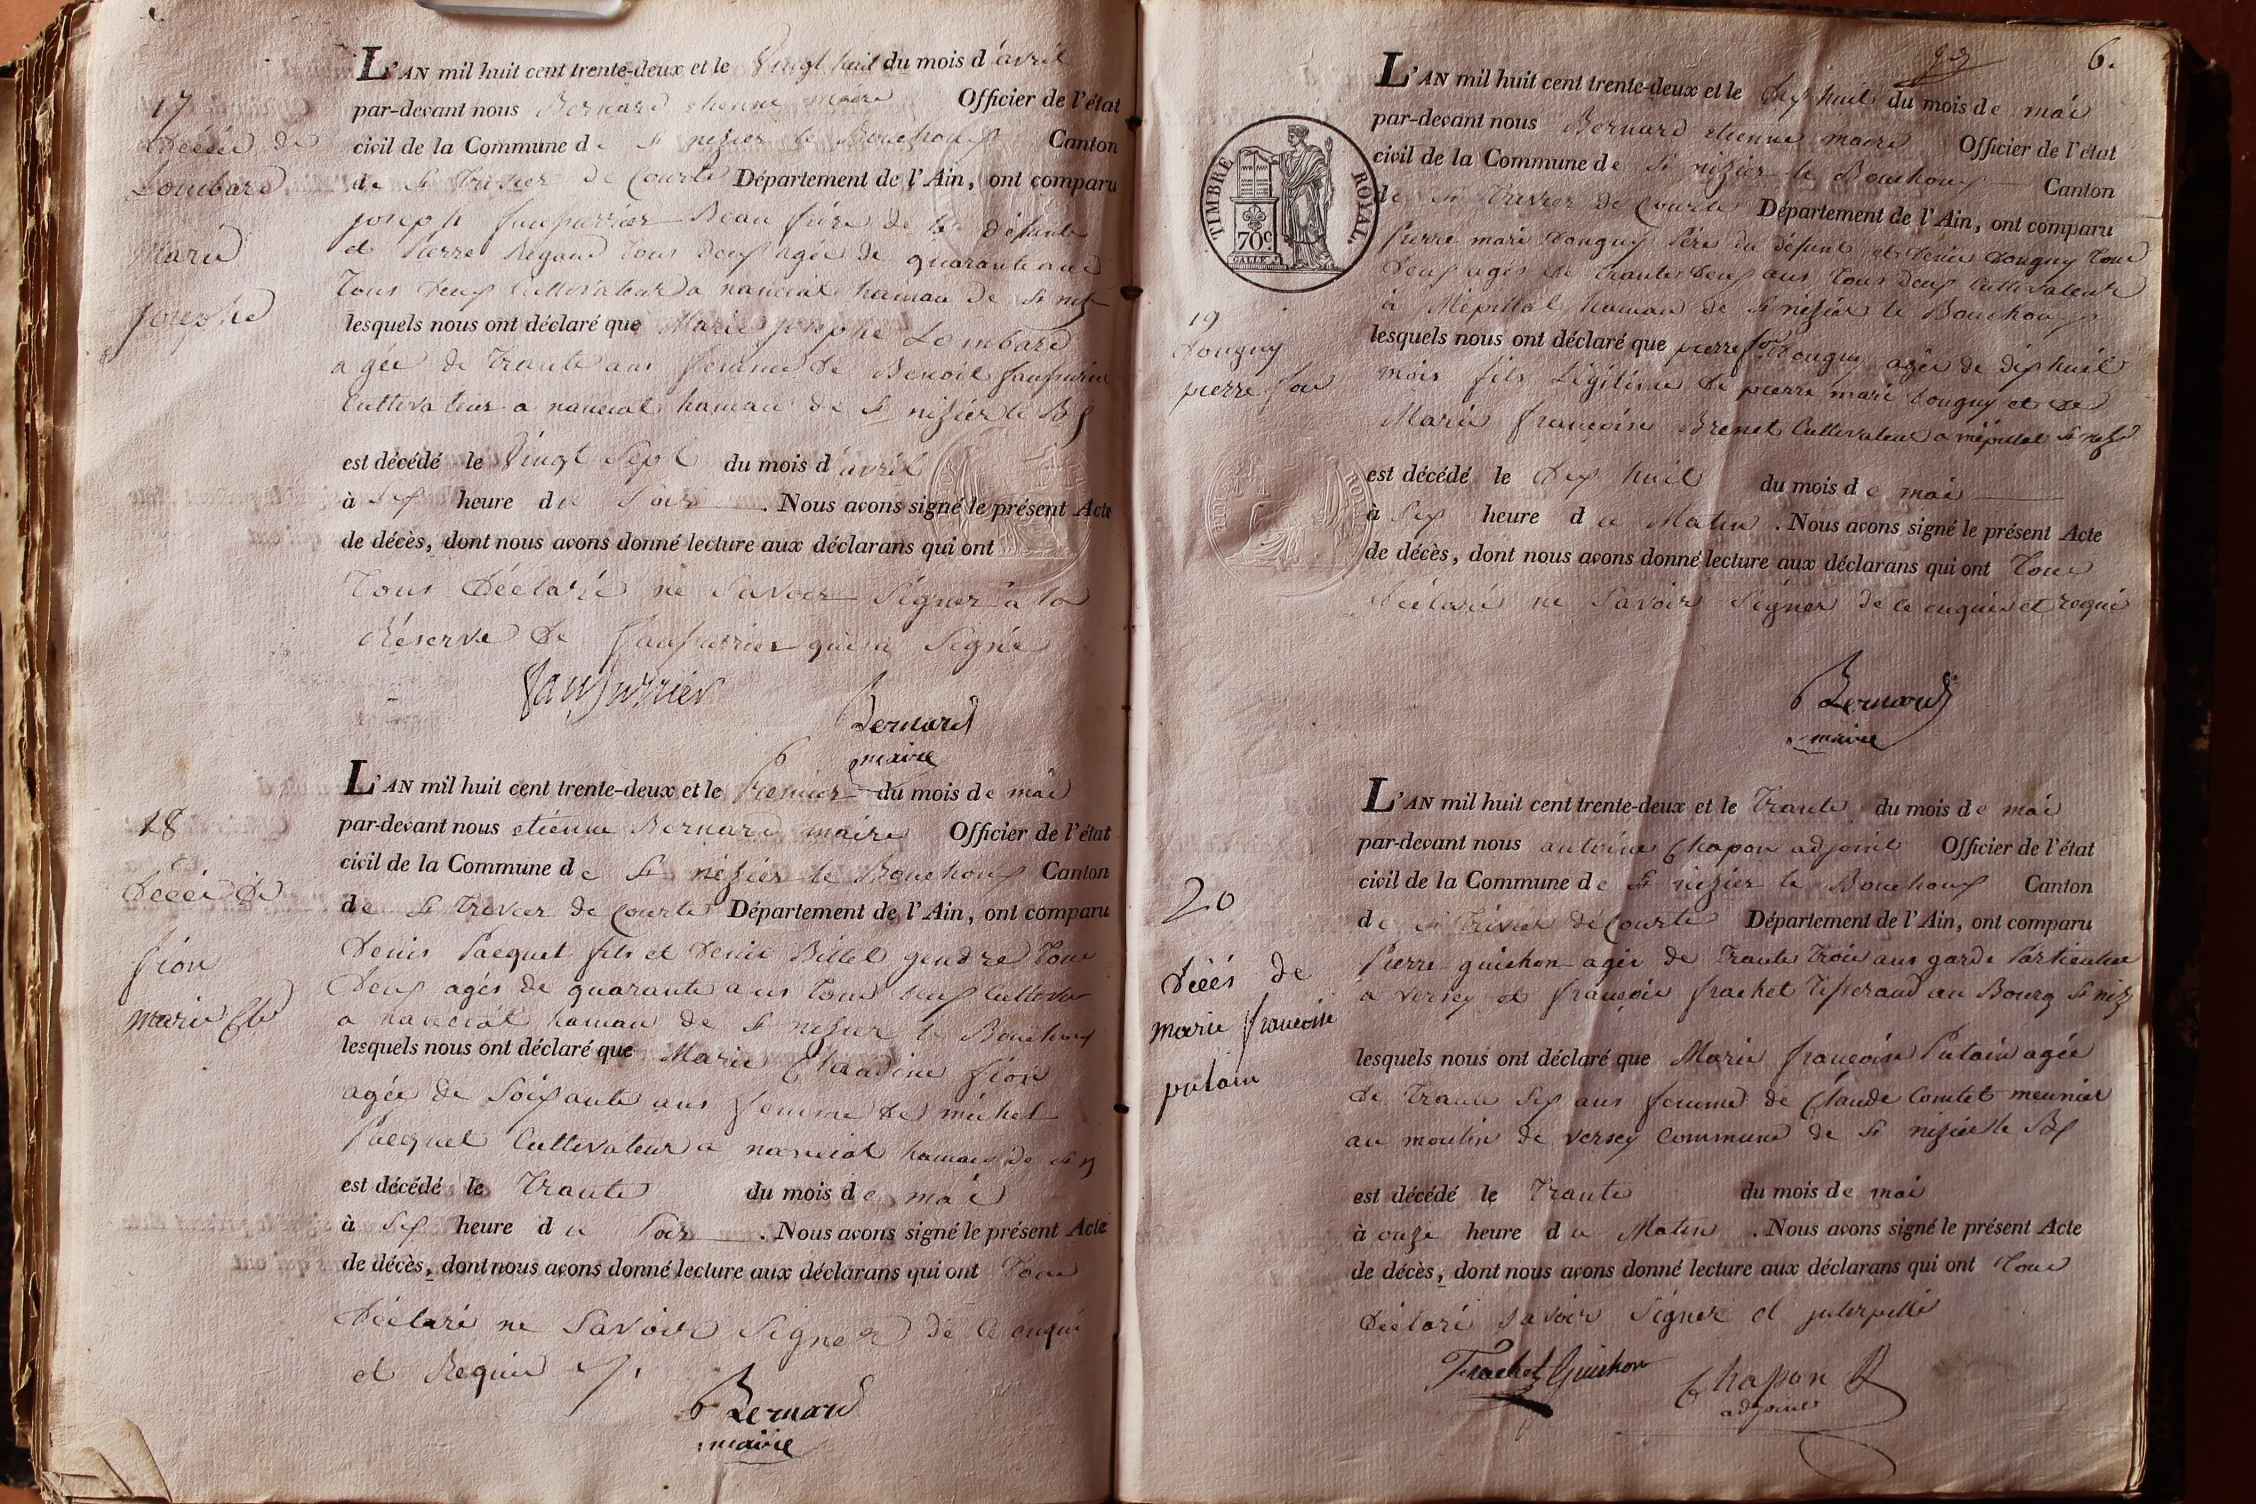 17
décès de
Lombard
Marie
Josephe
L'AN mil huit cent trente-deux et le Vingt huit du mois d'avril
par-devant nous Bernard etienne maire Officier de l'état
civil de la Commune de St nizier le Bouchoux Canton
de St Trivier de Courte Département de l'Ain, ont comparu
joseph Beau frère de la défunte
et Pierre Rigaud tous deux agée de quarante ans
tous deux Cultivateur a hamau de St niz
lesquels nous ont déclaré que Marie josephe Lombard
agée de trante ans femme de Benoit
Cultivateur a hamau de St nizier le Bx
est décédé le Vingt Sept du mois d'avril
à Six heure du Soir. Nous avons signé le présent Acte
de décès, dont nous avons donné lecture aux déclarans qui ont
tous déclaré ne Savoir Signer à la
Réserve de qui a Signé
Bernard
maire
18
décès de
fion
marie Cl
L'AN mil huit cent trente-deux et le Premier du mois de mai
par-devant nous etienne Bernard maire Officier de l'état
civil de la Commune de St nizier le Bouchoux Canton
de St Trivier de Courte Département de l'Ain, ont comparu
Denis Pacquet fils et Denis Billet gendre tous
deux agés de quarante ans tous deux Cultiva
a hamau de St nizier le Bouchoux
lesquels nous ont déclaré que Marie Claudine fion
agée de Soixante ans femme de michel
Pacquet Cultivateur a hamau de St n
est décédé le Trante du mois de mai
à Six heure du Soir. Nous avons signé le présent Acte
de décès, dont nous avons donné lecture aux déclarans qui ont tous
déclaré ne Savoir Signer de ce enquis
et Requis
Bernard
maire
6.
TIMBRE ROYAL.
70c
19
Dougny
pierre
L'AN mil huit cent trente-deux et le Dix huit du mois de mai
par-devant nous Bernard etienne maire Officier de l'état
civil de la Commune de St nizier le Bouchoux Canton
de St Trivier de Courte Département de l'Ain, ont comparu
Pierre marie Dougny Père du défunt et Denis Dougny tous
deux agés de trante deux ans tous deux Cultivateur
à Mépillat hamau de St nizier le Bouchoux
lesquels nous ont déclaré que pierre Dougny agée de dix huit
mois fils Légitime de pierre marie Dougny et de
Marie françoise Brenet Cultivateur a mépillat St niz
est décédé le Dix huit du mois de mai
à Six heure du Matin. Nous avons signé le présent Acte
de décès, dont nous avons donné lecture aux déclarans qui ont tous
déclaré ne Savoir Signer de ce enquis et requis
Bernard
maire
20
décès de
marie françoise
putain
L'AN mil huit cent trente-deux et le Trante du mois de mai
par-devant nous antoine Chapon adjoint Officier de l'état
civil de la Commune de St nizier le Bouchoux Canton
de St Trivier de Courte Département de l'Ain, ont comparu
Pierre guichon agée de trante trois ans garde Particulier
a versey et françois frachet Tisserand au Bourg St niz
lesquels nous ont déclaré que Marie françoise Putain agée
de trante Six ans femme de Claude Comtet meunier
au moulin de versey Commune de St nizier le Bx
est décédé le Trante du mois de mai
à onze heure du Matin. Nous avons signé le présent Acte
de décès, dont nous avons donné lecture aux déclarans qui ont tous
déclaré savoir Signer et
Frachet Guichon
Chapon
adjoint